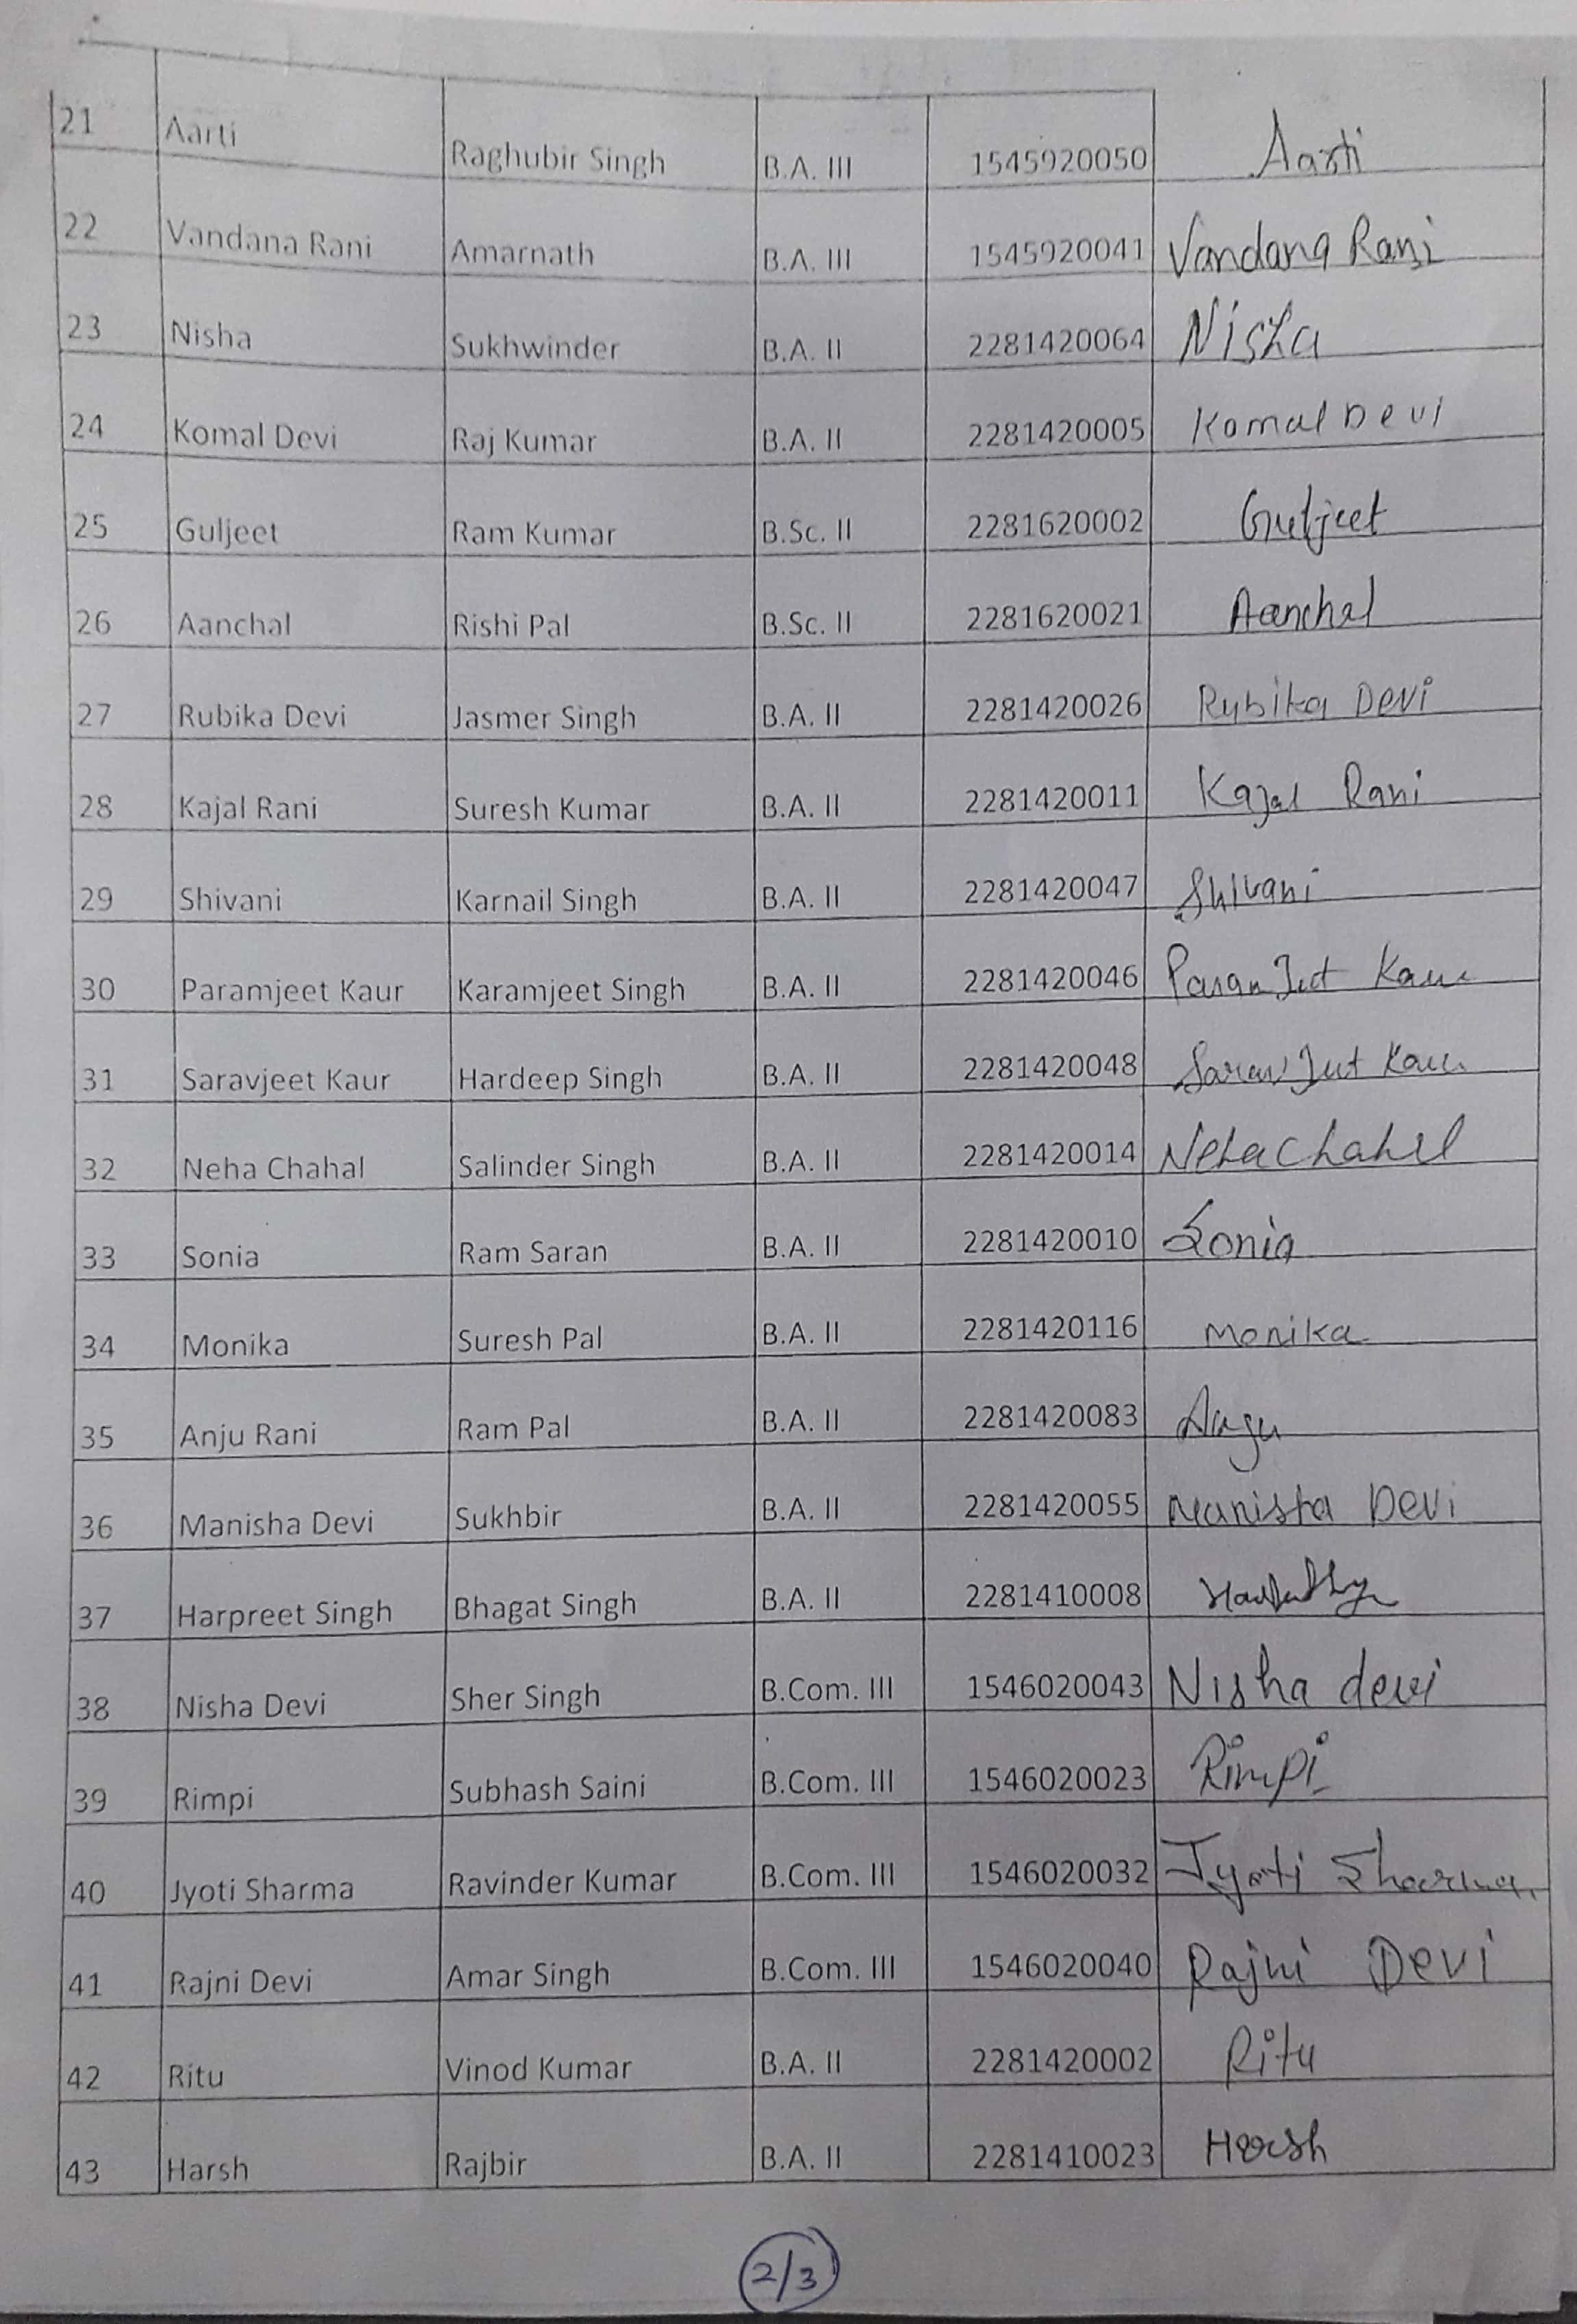 21 Aarti Raghubir Singh B.A. III 1545920050 Aarti
22 Vandana Rani Amarnath B.A. III 1545920041 Vandana Rani
23 Nisha Sukhwinder B.A. II 2281420064 Nisha
24 Komal Devi Raj Kumar B.A. II 2281420005 Komal Devi
25 Guljeet Ram Kumar B.Sc. II 2281620002 Guljeet
26 Aanchal Rishi Pal B.Sc. II 2281620021 Aanchal
27 Rubika Devi Jasmer Singh B.A. II 2281420026 Rubika Devi
28 Kajal Rani Suresh Kumar B.A. II 2281420011 Kajal Rani
29 Shivani Karnail Singh B.A. II 2281420047 Shivani
30 Paramjeet Kaur Karamjeet Singh B.A. II 2281420046 Kaur
31 Saravjeet Kaur Hardeep Singh B.A. II 2281420048 Kaur
32 Neha Chahal Salinder Singh B.A. II 2281420014 Neha Chahal
33 Sonia Ram Saran B.A. II 2281420010 Sonia
34 Monika Suresh Pal B.A. II 2281420116 Monika
35 Anju Rani Ram Pal B.A. II 2281420083 Anju
36 Manisha Devi Sukhbir B.A. II 2281420055 Manisha Devi
37 Harpreet Singh Bhagat Singh B.A. II 2281410008
38 Nisha Devi Sher Singh B.Com. III 1546020043 Nisha devi
39 Rimpi Subhash Saini B.Com. III 1546020023 Rimpi
40 Jyoti Sharma Ravinder Kumar B.Com. III 1546020032 Jyoti Sharma
41 Rajni Devi Amar Singh B.Com. III 1546020040 Rajni Devi
42 Ritu Vinod Kumar B.A. II 2281420002 Ritu
43 Harsh Rajbir B.A. II 2281410023 Harsh
2/3